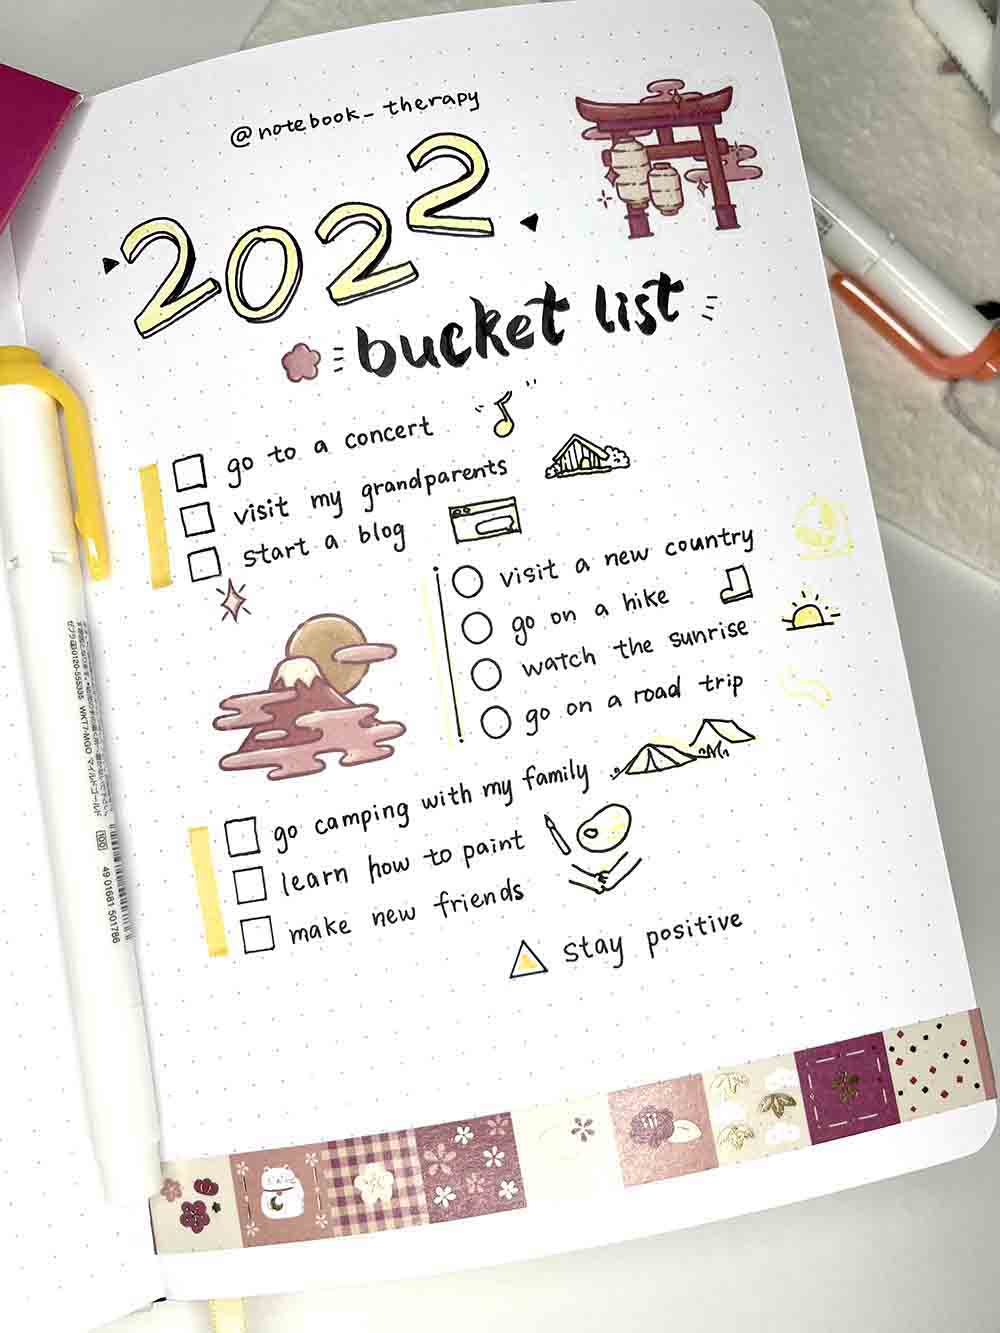 @notebook_therapy
2022
bucket list
go to a concert
visit my grandparents
start a blog
visit a new country
go on a hike
watch the sunrise
go on a road trip
go camping with my family
learn how to paint
make new friends
stay positive
WKT7-MGO マイルドゴールド
49 01681 501786